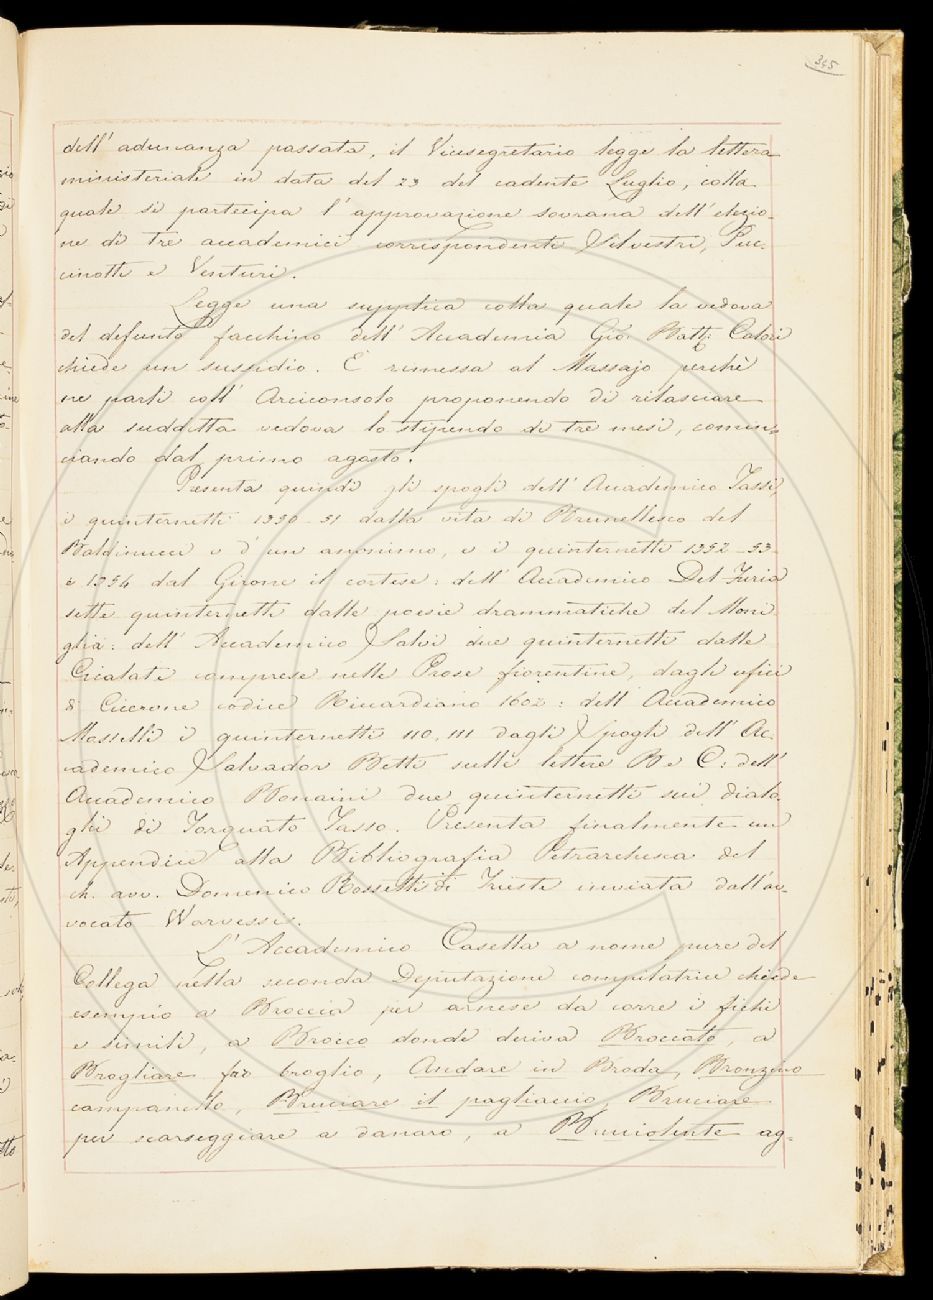 345
dell' adunanza passata, il Vicesegretario legge la lettera
ministeriale in data del 23 del cadente Luglio, colla
quale si partecipa l' approvazione sovrana dell' elezio-
ne di tre accademici corrispondenti Silvestri, Puc-
cinotti e Venturi.
Legge una supplica colla quale la vedova
del defunto facchino dell' Accademia Gio. Batt. Calori
chiede un sussidio. E' rimessa al Massajo perchè
ne parli coll' Arciconsolo proponendo di rilasciare
alla suddetta vedova lo stipendo di tre mesi, comin-
ciando dal primo agosto.
Presenta quindi gli spogli dell' Accademico Tassi,
i quinternetti 1350-51 dalla vita di Brunellesco del
Baldinucci e d' un anonimo, e i quinternetti 1352-53-
e 1354 dal Girone il cortese: dell' Accademico Del Furia
sette quinternetti dalle poesie drammatiche del Moni
glia: dell' Accademico Salvi due quinternetti dalle
Cicalate comprese nelle Prose fiorentine, dagli ufici
di Cicerone codice Riccardiano 1602: dell' Accademico
Masselli i quinternetti 110, 111 dagli Spogli dell' Ac-
cademico Salvador Betti sulle lettere B e C: dell'
Accademico Bonaini due quinternetti sui dialo-
ghi di Torquato Tasso. Presenta finalmente un
Appendice alla Bibliografia Petrarchesca del
ch. avv. Domenico Rossetti di Trieste inviata dall'av-
vocato
L' Accademico Casella a nome pure del
Collega nella seconda Deputazione compilatrice chiede
esempio a Broccia per arnese da corre i fichi
e simili, a Brocco donde deriva Broccato, a
Brogliare fro broglio, Andare in Broda, Bronzino
campanello, Bruciare il pagliaccio, Bruciare
per scarseggiare a danaro, a Bruciolente ag-